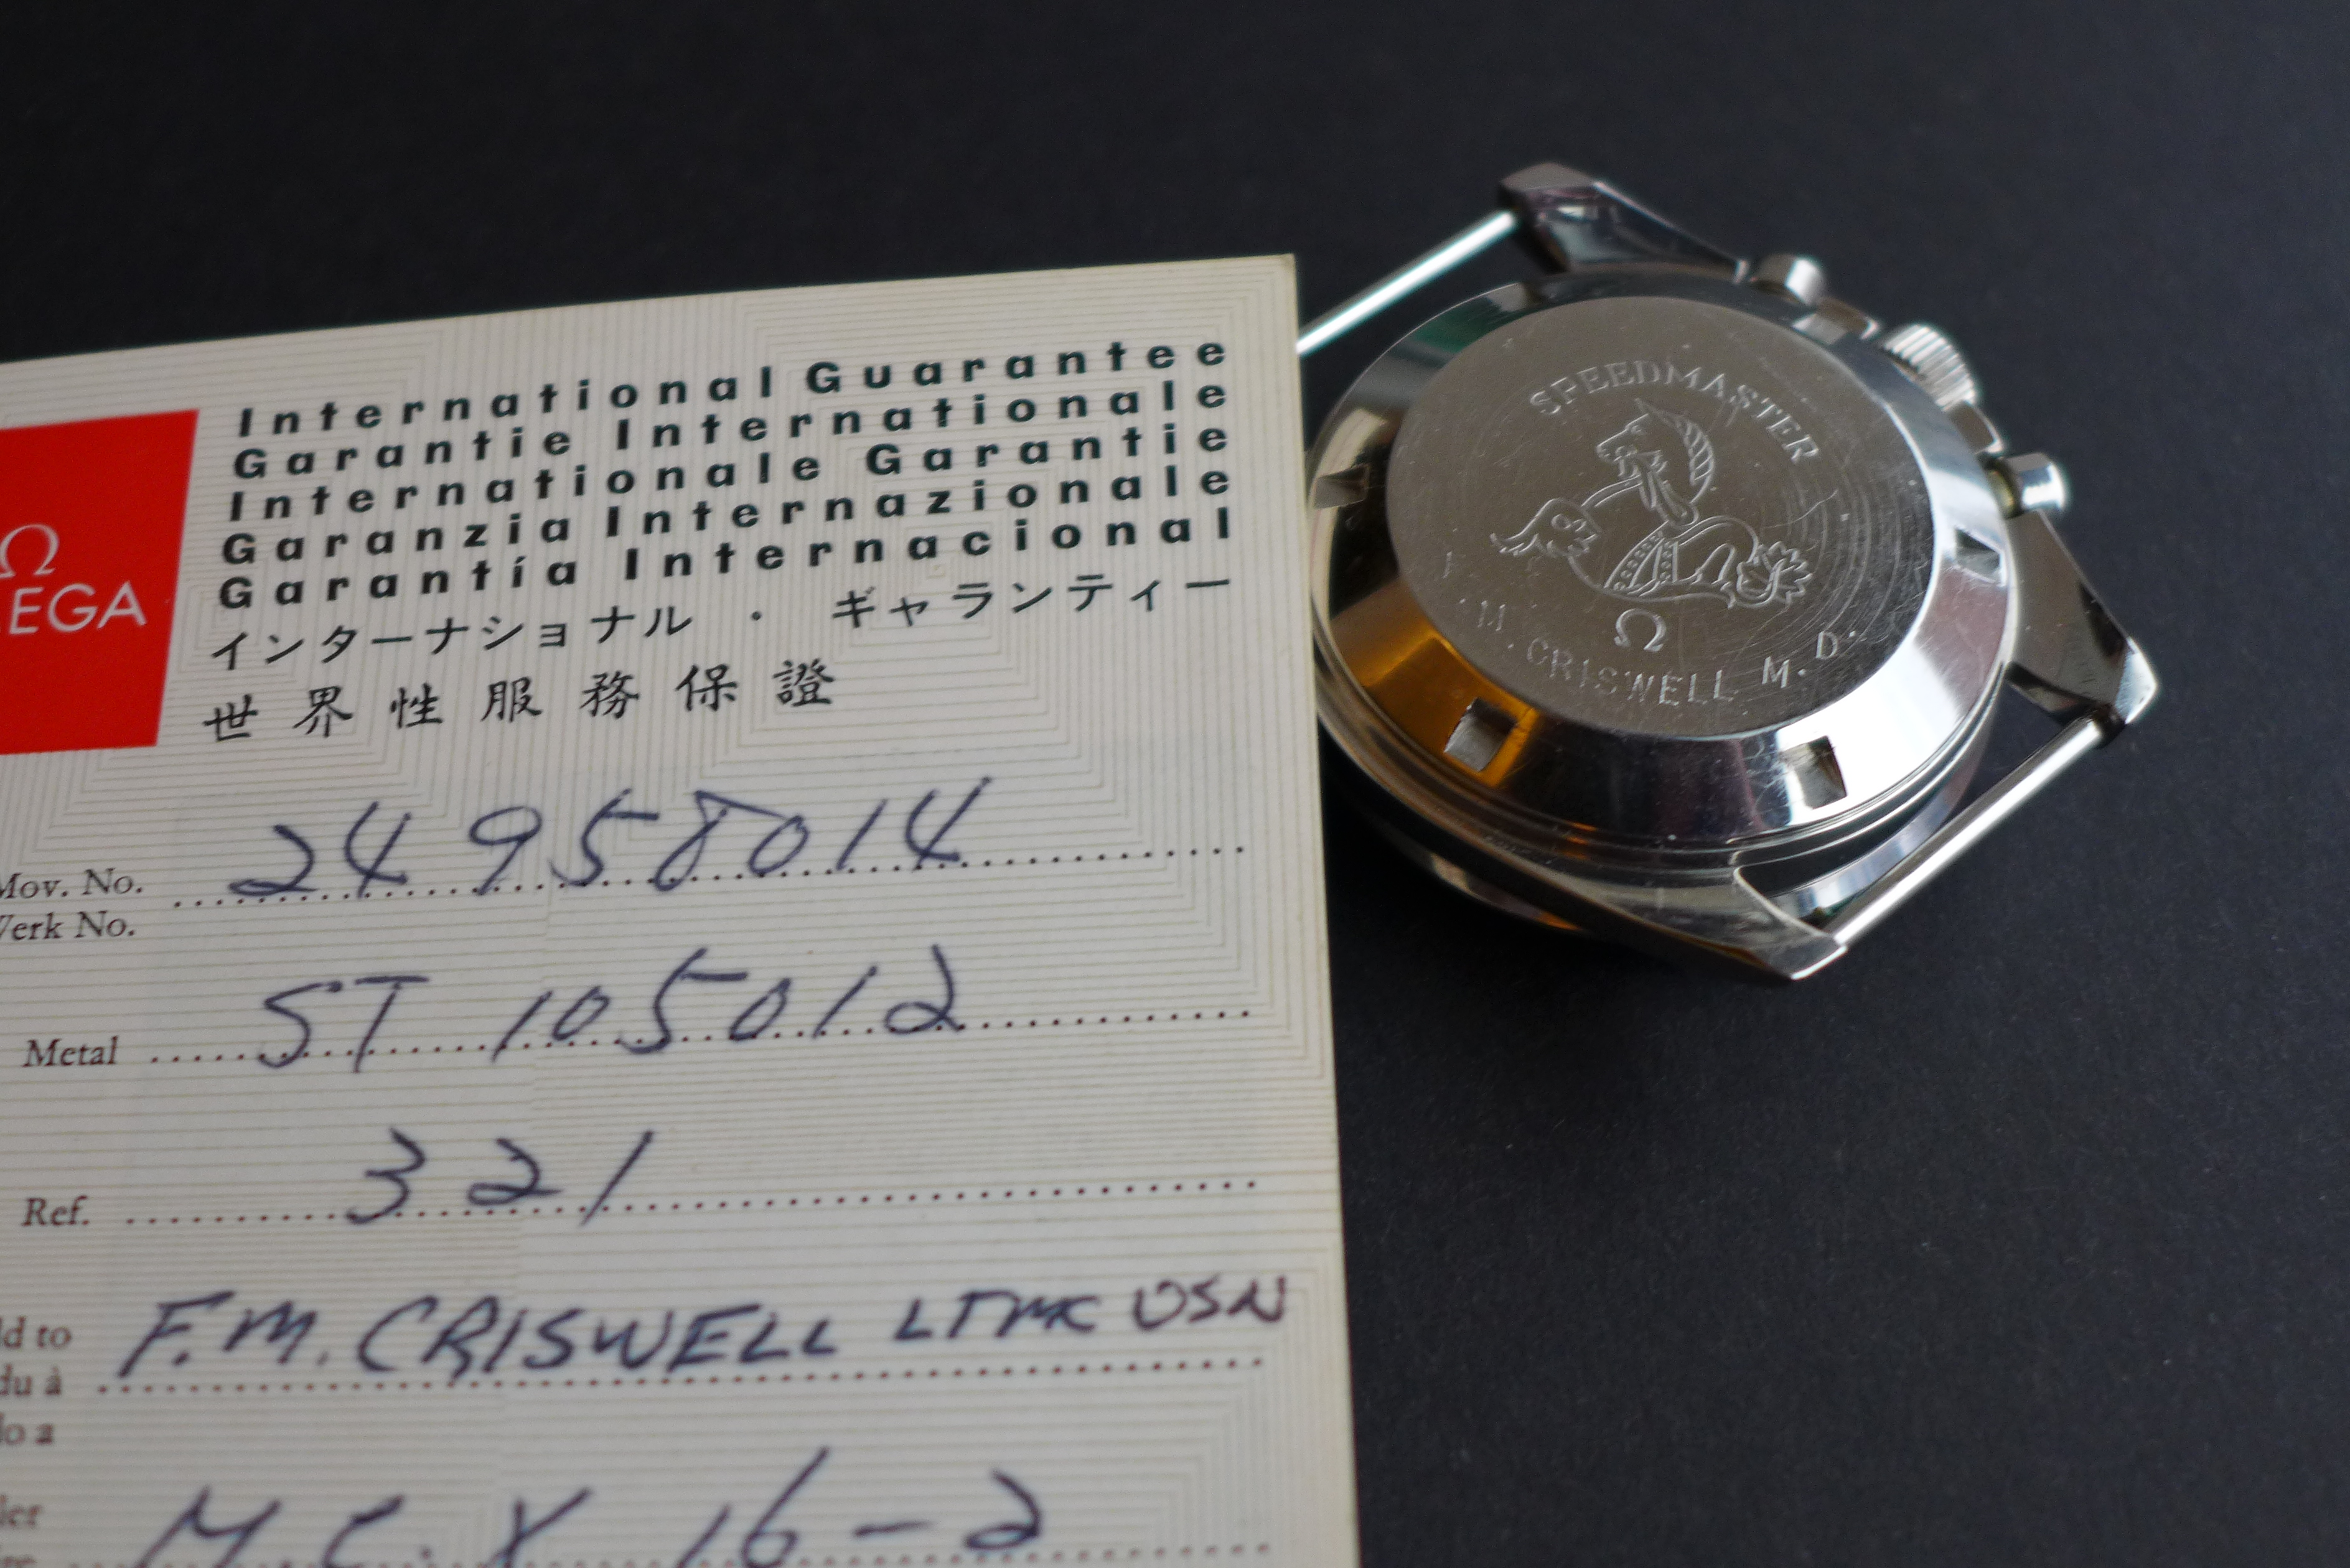 International Guarantee
Garantie Internationale
Internationale Garantie
Garanzia Internazionale
Garantía Internacional
インターナショナル・ギャランティー
世界性服務保證
Ω
EGA
Mov. No. 24958014
Werk No.
Metal ST 105012
Ref. 321
ld to F.M. CRISWELL LTMC USN
du à
do a
ler M.C.X 16-2
SPEEDMASTER
Ω
M. CRISWELL M.D.